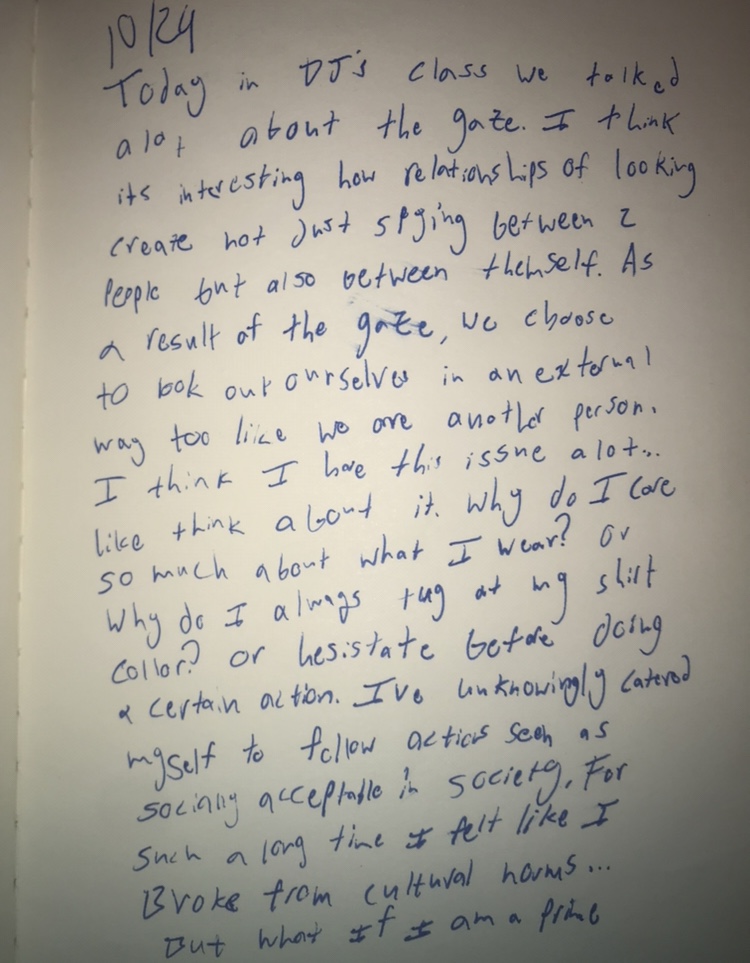 10/24
Today in DJ's class we talked
a lot about the gaze. I think
its interesting how relationships of looking
create not just spying between 2
people but also between themself. As
a result of the gaze, we choose
to look out ourselves in an external
way too like we are another person.
I think I have this issue alot...
like think about it. Why do I care
so much about what I wear? or
Why do I always tug at my shirt
collar? or hesistate before doing
a certain action. I've unknowingly catered
myself to follow actions seen as
socially acceptable in society. For
such a long time I felt like I
Broke from cultural norms...
But what if I am a prime